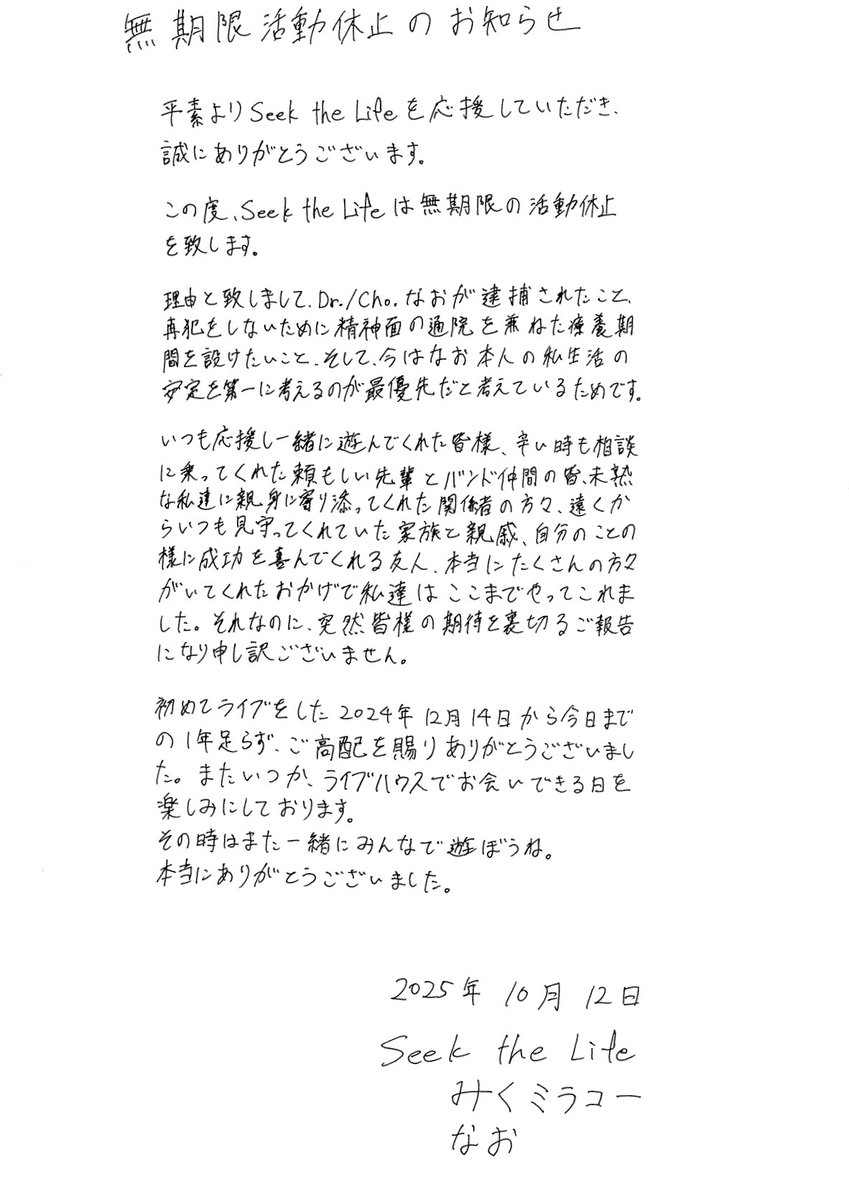 無期限活動休止のお知らせ
平素よりSeek the Lifeを応援していただき、
誠にありがとうございます。
この度、Seek the Lifeは無期限の活動休止
を致します。
理由と致しまして、Dr./Cho.なおが逮捕されたこと、
再犯をしないために精神面の通院を兼ねた療養期
間を設けたいこと、そして、今はなお本人の私生活の
安定を第一に考えるのが最優先だと考えているためです。
いつも応援し一緒に遊んでくれた皆様、辛い時も相談
に乗ってくれた頼もしい先輩とバンド仲間の皆、未熟
な私達に親身に寄り添ってくれた関係者の方々、遠くか
らいつも見守ってくれていた家族と親戚、自分のことの
様に成功を喜んでくれる友人、本当にたくさんの方々
がいてくれたおかげで私達はここまでやってこれま
した。それなのに、突然皆様の期待を裏切るご報告
になり申し訳ございません。
初めてライブをした2024年12月14日から今日まで
の1年足らず、ご高配を賜りありがとうございまし
た。またいつか、ライブハウスでお会いできる日を
楽しみにしております。
その時はまた一緒にみんなで遊ぼうね。
本当にありがとうございました。
2025年10月12日
Seek the Life
みくミラコー
なお